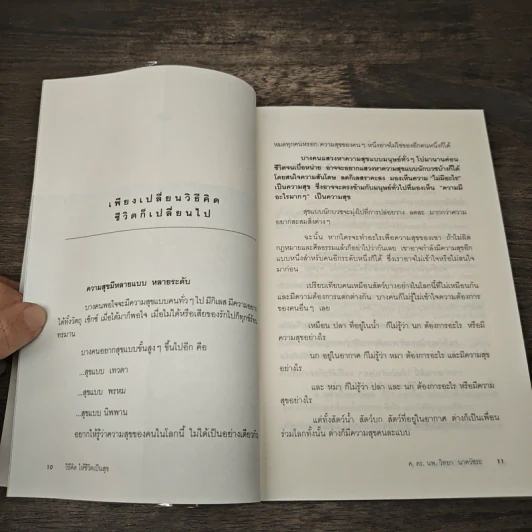 เพียงเปลี่ยนวิธีคิด
ชีวิตก็เปลี่ยนไป
ความสุขมีหลายแบบ หลายระดับ
บางคนพอใจจะมีความสุขแบบคนทั่วๆ ไป มีกิเลส มีความอยาก
ได้ทั้งวัตถุ เซ็กซ์ เมื่อได้มาก็พอใจ เมื่อไม่ได้หรือเสียของรักไปก็ทุกข์
ทรมาน
บางคนอยากสุขแบบชั้นสูงๆ ขึ้นไปอีก คือ
...สุขแบบ เทวดา
...สุขแบบ พรหม
...สุขแบบ นิพพาน
อยากให้รู้ว่าความสุขของคนในโลกนี้ ไม่ได้เป็นอย่างเดียวกัน
10 วิธีคิด ให้ชีวิตเป็นสุข
หมดทุกคนหรอก ความสุขของคนๆ หนึ่งอาจไม่ใช่ของอีกคนหนึ่งก็ได้
บางคนแสวงหาความสุขแบบมนุษย์ทั่วๆ ไปมานานค่อน
ชีวิตจนเบื่อหน่าย อาจจะอยากแสวงหาความสุขแบบนักบวชบ้างก็ได้
โดยสนใจความสันโดษ ลดกิเลสราคะลง มองเห็นความ "ไม่มีอะไร"
เป็นความสุข ซึ่งอาจจะตรงข้ามกับมนุษย์ทั่วไปที่มองเห็น "ความมี
อะไรมากๆ" เป็นความสุข
สุขแบบนักบวชจะมุ่งไปที่การปล่อยวาง ลดละ มากกว่าความ
อยากสะสมสิ่งต่างๆ
ฉะนั้น หากใครจะทำอะไรเพื่อความสุขของเขา ถ้าไม่ผิด
กฎหมายและศีลธรรมแล้วก็อย่าไปว่ากันเลย เขาอาจกำลังมีความสุขอีก
แบบหนึ่งสำหรับคนอีกระดับหนึ่งก็ได้ ซึ่งเราอาจไม่เข้าใจหรือไม่สนใจ
มาก่อน
เปรียบเทียบเหมือนสัตว์บางอย่างในโลกนี้ที่ไม่เหมือนกัน
และมีความต้องการแตกต่างกัน บางคนก็ไม่รู้ไม่เข้าใจความต้องการ
ของคนอื่นๆ เลย
เหมือน ปลา ที่อยู่ในน้ำ ก็ไม่รู้ว่า นก ต้องการอะไร หรือมี
ความสุขอย่างไร
นก อยู่ในอากาศ ก็ไม่รู้ว่า หมา ต้องการอะไร และมีความสุข
อย่างไร
และ หมา ก็ไม่รู้ว่า ปลา และ นก ต้องการอะไร หรือมีความ
สุขอย่างไร
แต่ทั้งสัตว์น้ำ สัตว์บก สัตว์ที่อยู่ในอากาศ ต่างก็เป็นเพื่อน
ร่วมโลกทั้งนั้น ต่างก็มีความสุขคนละแบบ
ศ. ดร. นพ. วิทยา นาควัชระ 11